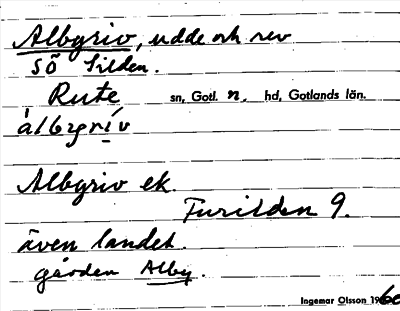 Albyriv, udde och rev
SÖ Silden.
Rute sn, Gotl. n. hd, Gotlands län.
Albyriv ek.
Furilden 9.
även landet.
gården Alby.
Ingemar Olsson 1960